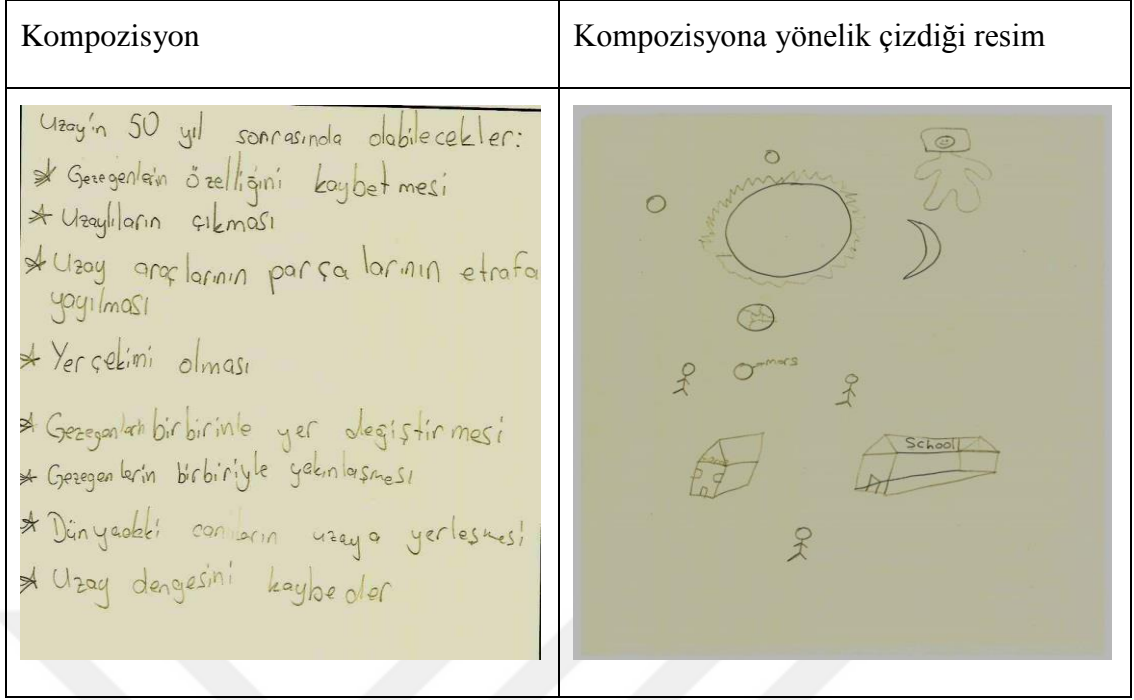 Kompozisyon
Kompozisyona yönelik çizdiği resim
Uzay'ın 50 yıl sonrasında olabilecekler:
* Gezegenlerin özelliğini kaybetmesi
* Uzaylıların çıkması
* Uzay araçlarının parçalarının etrafa
yayılması
* Yer çekimi olması
* Gezegenlerin birbirinle yer değiştirmesi
* Gezegenlerin birbiriyle yakınlaşması
* Dünyadaki canlıların uzaya yerleşmesi
* Uzay dengesini kaybeder
mars
School